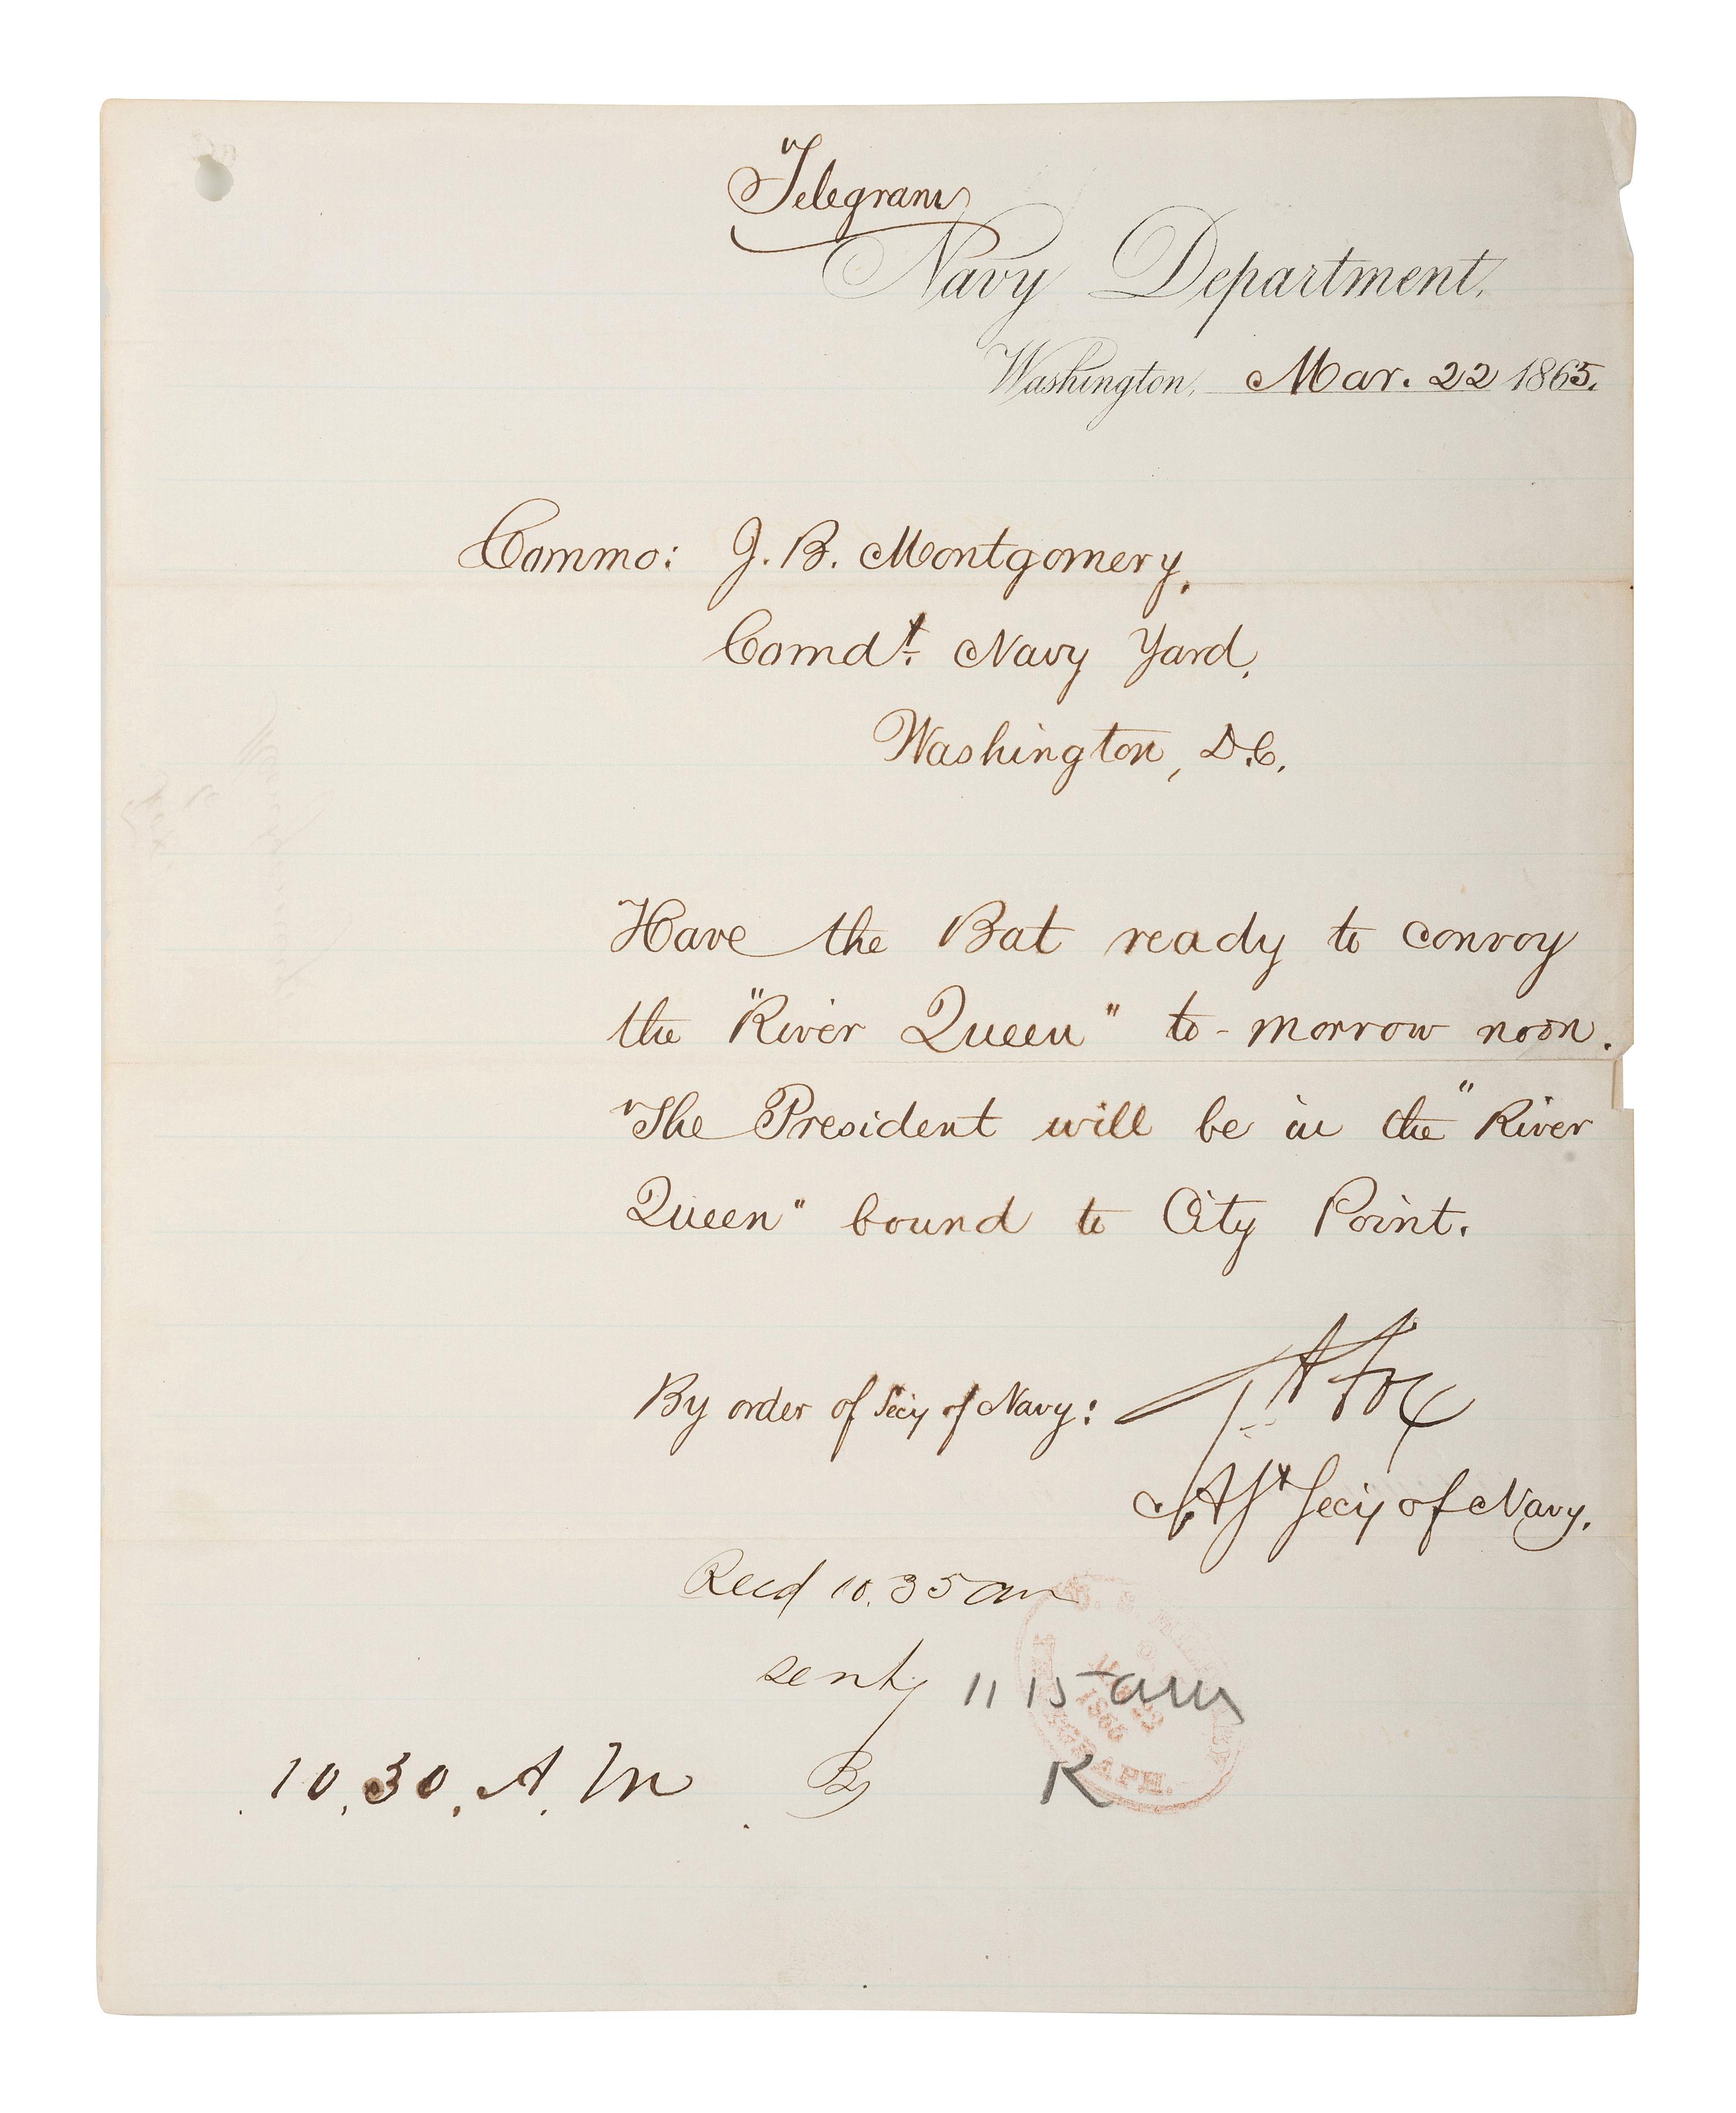 Telegram
Navy Department,
Washington, Mar. 22 1865.
Commo: J. B. Montgomery,
Comdt. Navy Yard,
Washington, D.C.
Have the Bat ready to convoy
the "River Queen" to-morrow noon.
The President will be in the "River
Queen" bound to City Point.
By order of Secy of Navy: G V Fox
Asst Secy of Navy.
Recd 10.35 am
sent 11 15 am
10.30. A. M By R
U. S. MILITARY
22
1865
TELEGRAPH.